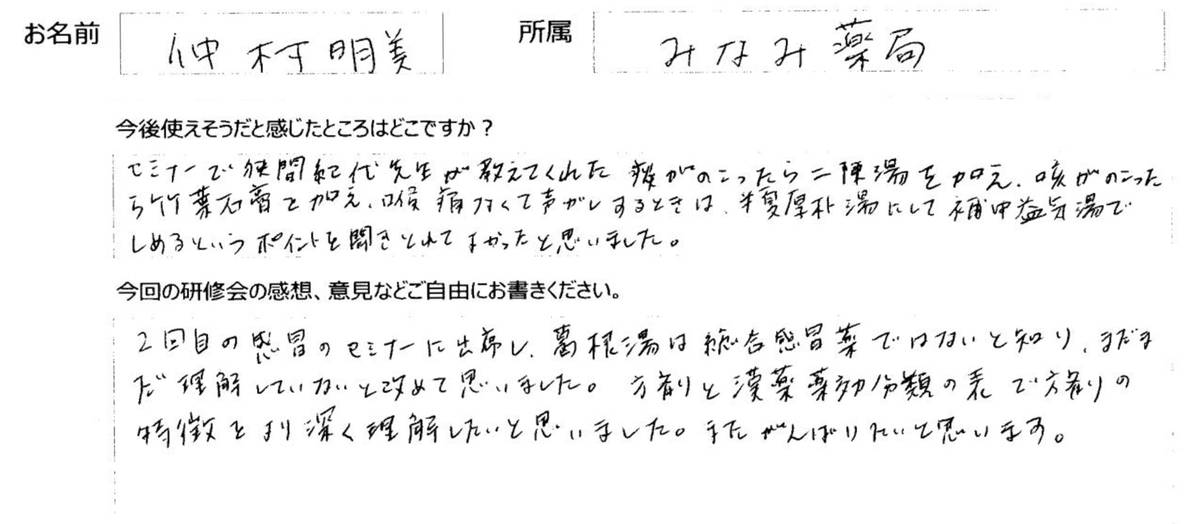 お名前 仲村明美 所属 みなみ薬局
今後使えそうだと感じたところはどこですか？
セミナーで狭間紀代先生が教えてくれた 痰がのこったら二陳湯を加え、咳がのこった
ら竹葉石膏を加え、喉痛なくて声がしするときは、半夏厚朴湯にして補中益気湯で
しめるというポイントを聞きとれてよかったと思いました。
今回の研修会の感想、意見などご自由にお書きください。
2回目の感冒のセミナーに出席し、葛根湯は総合感冒薬ではないと知り、まだま
だ理解していないと改めて思いました。方剤と漢薬薬効分類の表で方剤の
特徴をより深く理解したいと思いました。またがんばりたいと思います。